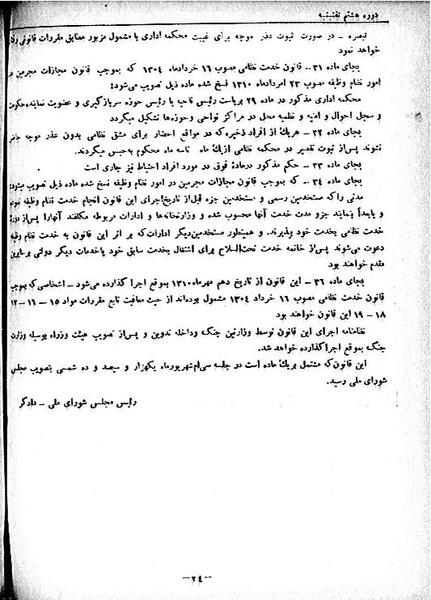 دوره هشتم تقنینیه
تبصره - در صورت ثبوت عذر موجه برای غیبت محکمه اداری با مشمول مزبور مطابق مقررات قانونی رفتار
خواهد نمود
بجای ماده ۳۱ - قانون خدمت نظامی مصوب ۱۶ خردادماه ۱۳۰۴ که بموجب قانون مجازات مجرمین در
امور نظام وظیفه مصوب ۲۳ امردادماه ۱۳۱۰ نسخ شده ماده ذیل تصویب می‌شود:
محکمه اداری مذکور در ماده ۲۹ بریاست رئیس ناحیه یا رئیس حوزه سربازگیری و عضویت نماینده حکومت
و سجل احوال و امنیه و نظمیه محل در مراکز نواحی و حوزه‌ها تشکیل میگردد
بجای ماده ۳۲ - هریك از افراد ذخیره که در مواقع احضار برای مشق نظامی بدون عذر موجه حاضر
نشوند پس از ثبوت تقصیر در محکمه نظامی از یك ماه تا سه ماه محکوم به حبس میگردند.
بجای ماده ۳۳ - حکم مذکور در ماده فوق در مورد افراد احتیاط نیز جاری است
بجای ماده ۳۴ - که بموجب قانون مجازات مجرمین در امور نظام وظیفه نسخ شده ماده ذیل تصویب میشود:
مدتی را که مستخدمین رسمی و مستخدمین جزء قبل از تاریخ اجرای این قانون انجام خدمت نظام وظیفه
و یا بعداً بنمایند جزو مدت خدمت آنها محسوب شده و وزارتخانه‌ها و ادارات مربوطه مکلفند آنها را پس از دورهٔ
خدمت نظامی بخدمت خود بپذیرند. و همینطور مستخدمین دیگر ادارات که بر اثر این قانون به خدمت نظام وظیفه
دعوت می‌شوند پس از خاتمه خدمت تحت‌السلاح برای اشتغال بخدمت سابق خود یا خدمات دیگر دولتی بر سایرین
مقدم خواهند بود
بجای ماده ۳۶ - این قانون از تاریخ دهم مهرماه ۱۳۱۰ بموقع اجرا گذارده می‌شود - اشخاصی که بموجب
قانون خدمت نظامی مصوب ۱۶ خرداد ۱۳۰۴ مشمول بوده‌اند از حیث معافیت تابع مقررات مواد ۱۵ - ۱۱ - ۱۲
۱۸ - ۱۹ این قانون خواهند بود
نظامنامه اجرای این قانون توسط وزارتین جنگ و داخله تدوین و پس از تصویب هیئت وزراء بوسیله وزارت
جنگ بموقع اجرا گذارده خواهد شد.
این قانون که مشتمل بریك ماده است در جلسه سی‌ام شهریورماه یکهزار و سیصد و ده شمسی بتصویب مجلس
شورای ملی رسید.
رئیس مجلس شورای ملی - دادگر
-۲۴-